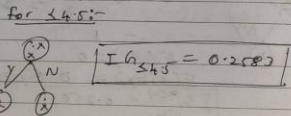 for ≤4.5:-
Y N
IG≤4.5 = 0.2583